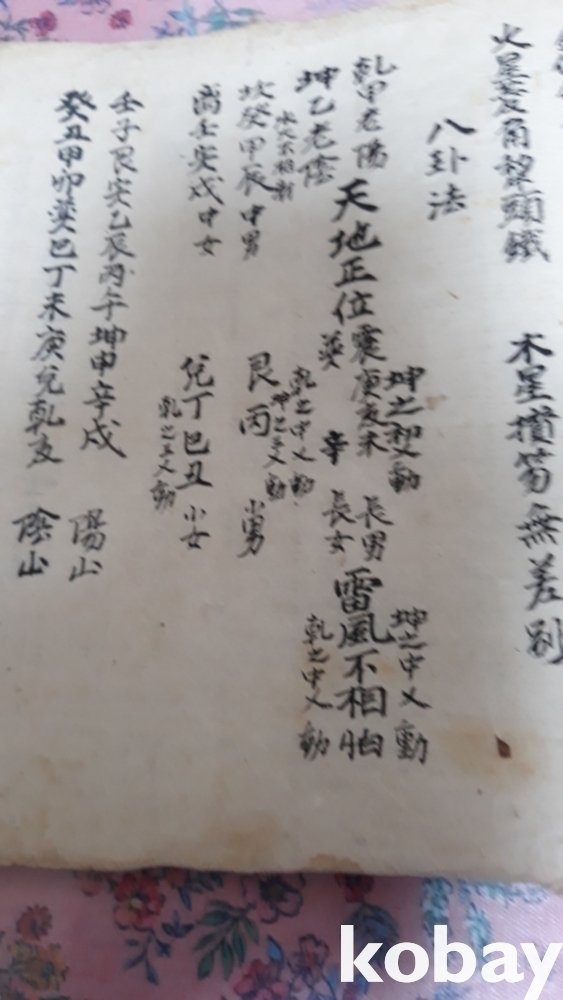 火星㚆角犂頭鐵 木星墳笏無差別
八卦法
乾甲老陽
坤乙老陰
天地正位
水火不相射
坎癸甲辰中男
离壬寅戌中女
坤之初乂動
震庚亥未 長男
巽 辛 長女
雷風不相
坤之中乂動
乾之中乂動
乾之中乂動
坤之三乂動
艮丙 小男
兌丁巳丑 小女
乾之三乂動
壬子艮寅乙辰丙午坤申辛戌 陽山
癸丑甲卯巽巳丁未庚兌乾亥 陰山
kobay